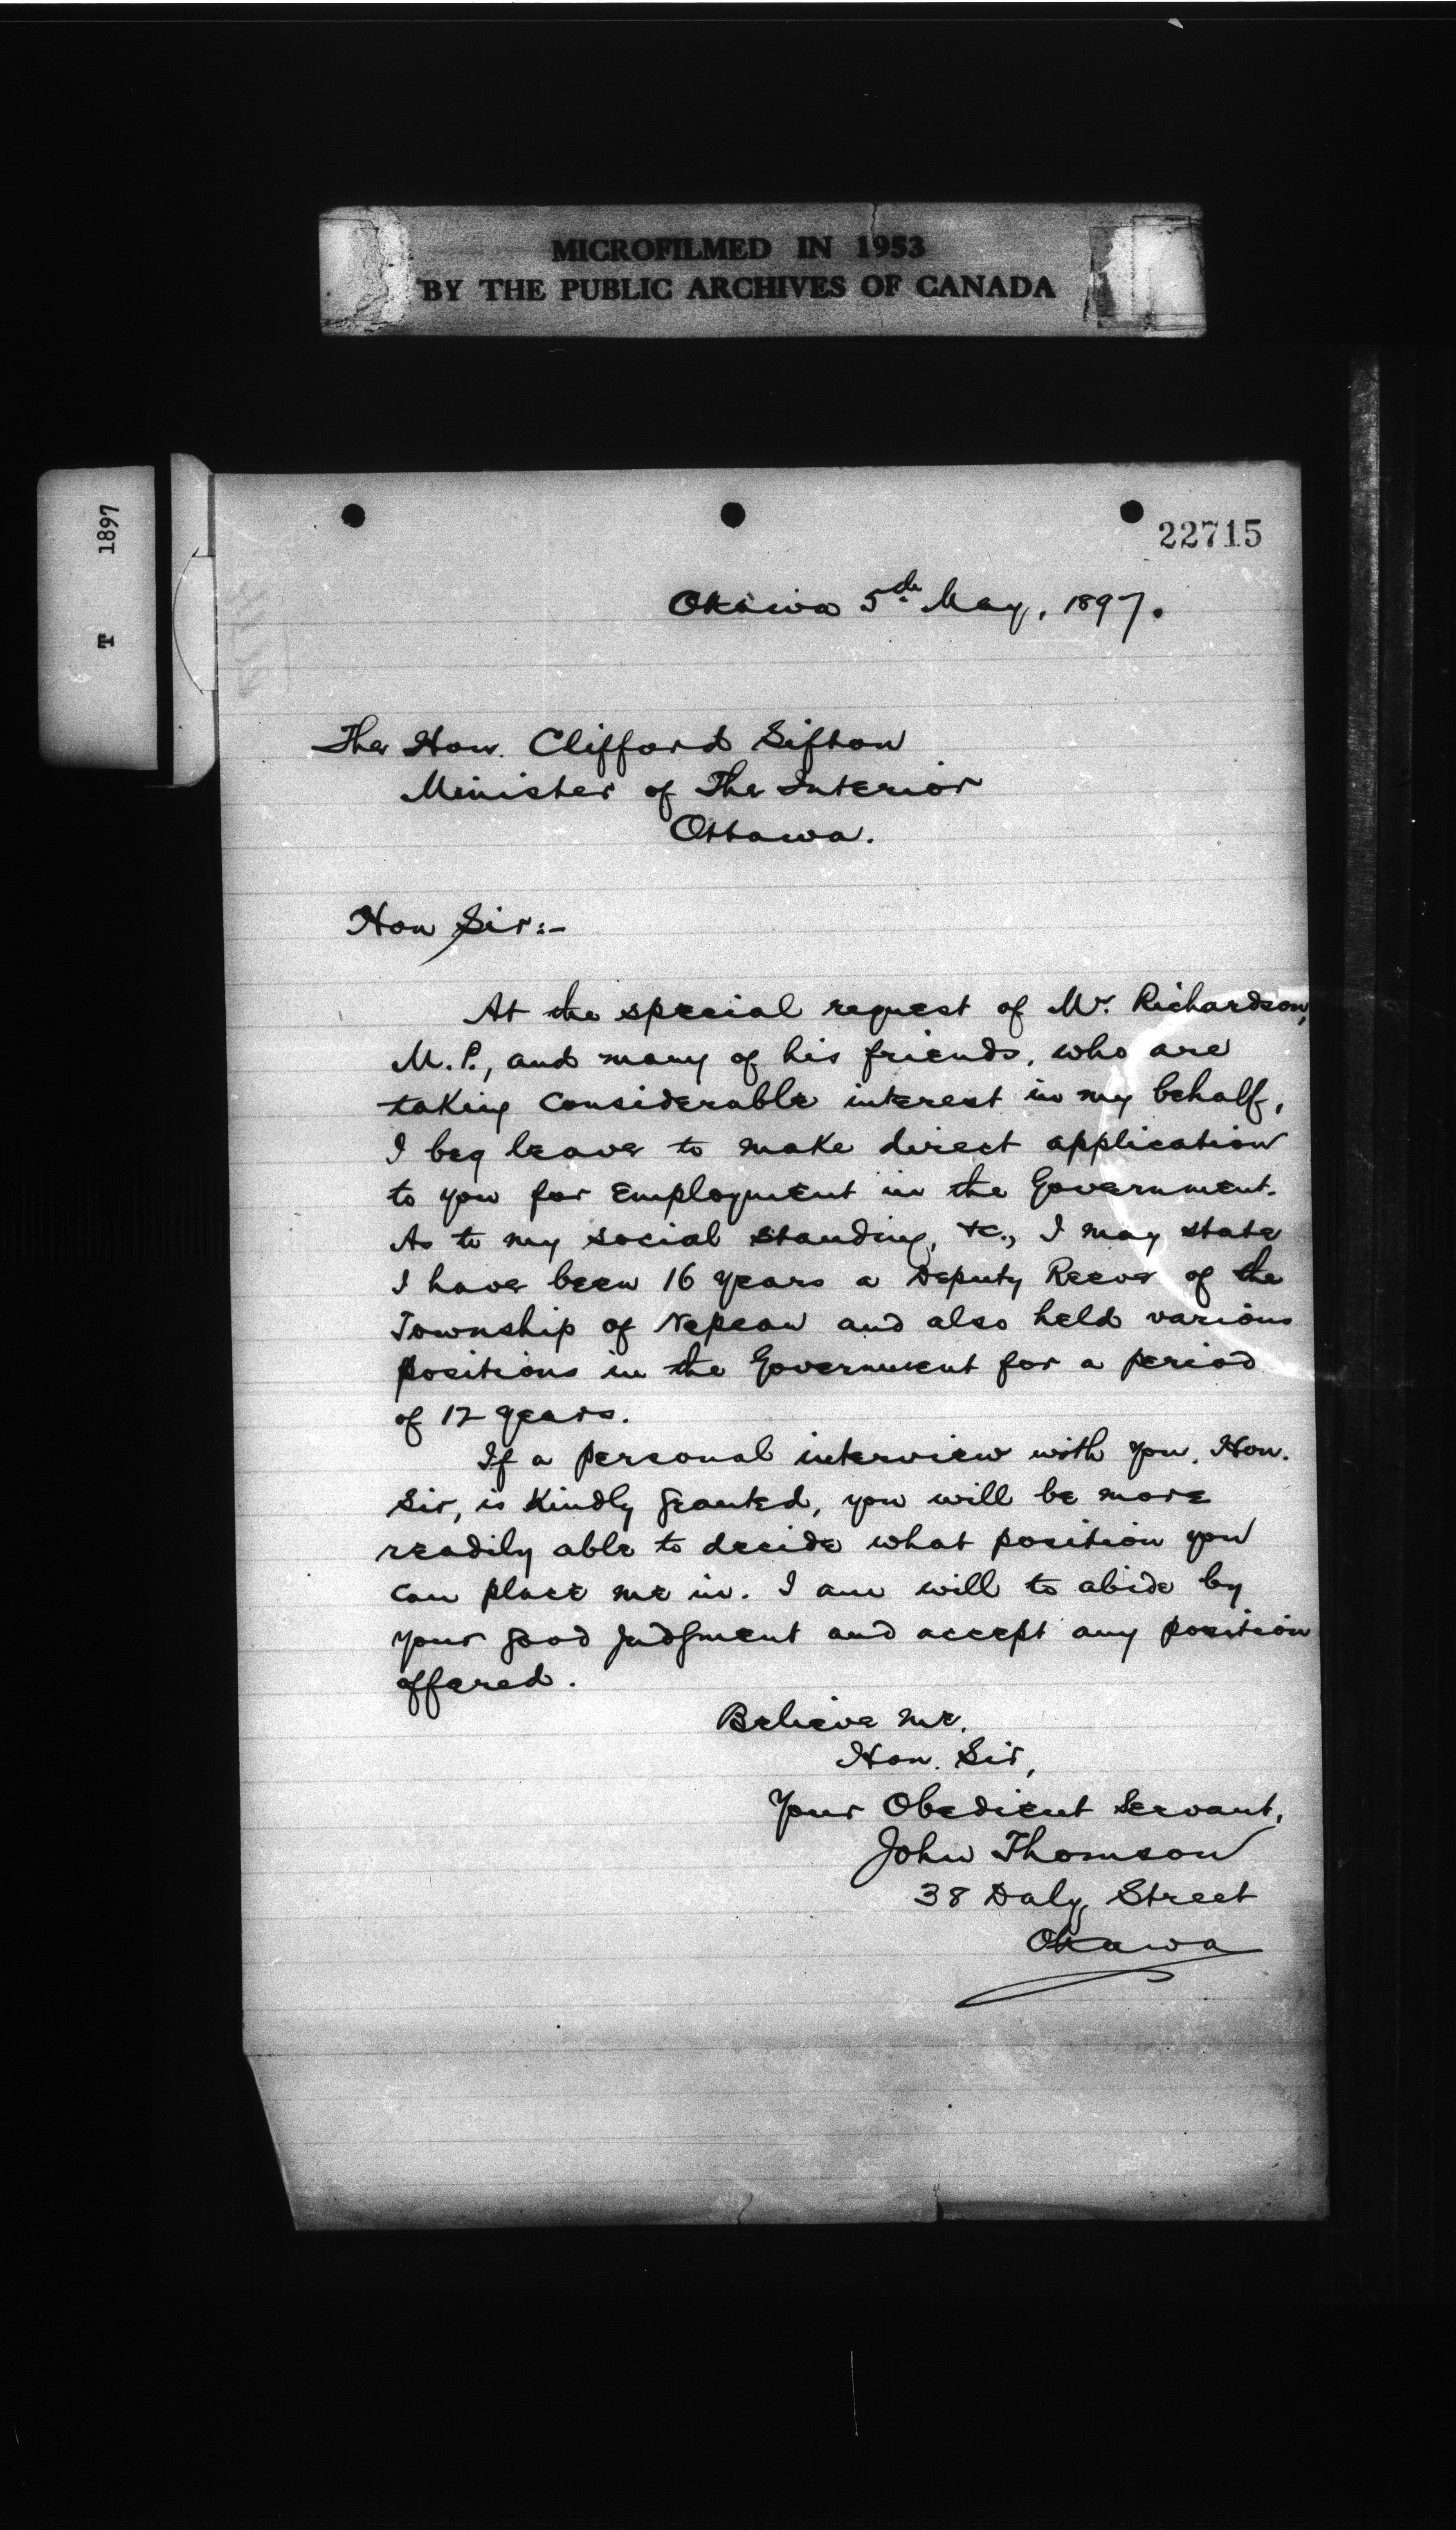 MICROFILMED IN 1953
BY THE PUBLIC ARCHIVES OF CANADA
T 1897
22715
Ottawa 5th May, 1897.
The Hon. Clifford Sifton
Minister of The Interior
Ottawa.
Hon Sir:-
At the special request of Mr. Richardson,
M.P., and many of his friends, who are
taking considerable interest in my behalf,
I beg leave to make direct application
to you for Employment in the Government.
As to my social standing, &c., I may state
I have been 16 years a Deputy Reeve of the
Township of Nepean and also held various
positions in the Government for a period
of 12 years.
If a personal interview with you, Hon.
Sir, is Kindly granted, you will be more
readily able to decide what position you
can place me in. I am will to abide by
your good judgment and accept any position
offered.
Believe me,
Hon. Sir,
Your Obedient Servant,
John Thomson
38 Daly Street
Ottawa